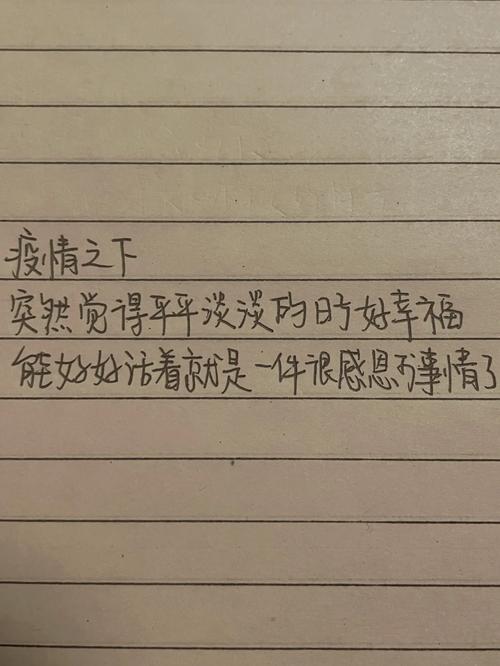 疫情之下
突然觉得平平淡淡的日子好幸福
能好好活着就是一件很感恩的事情了